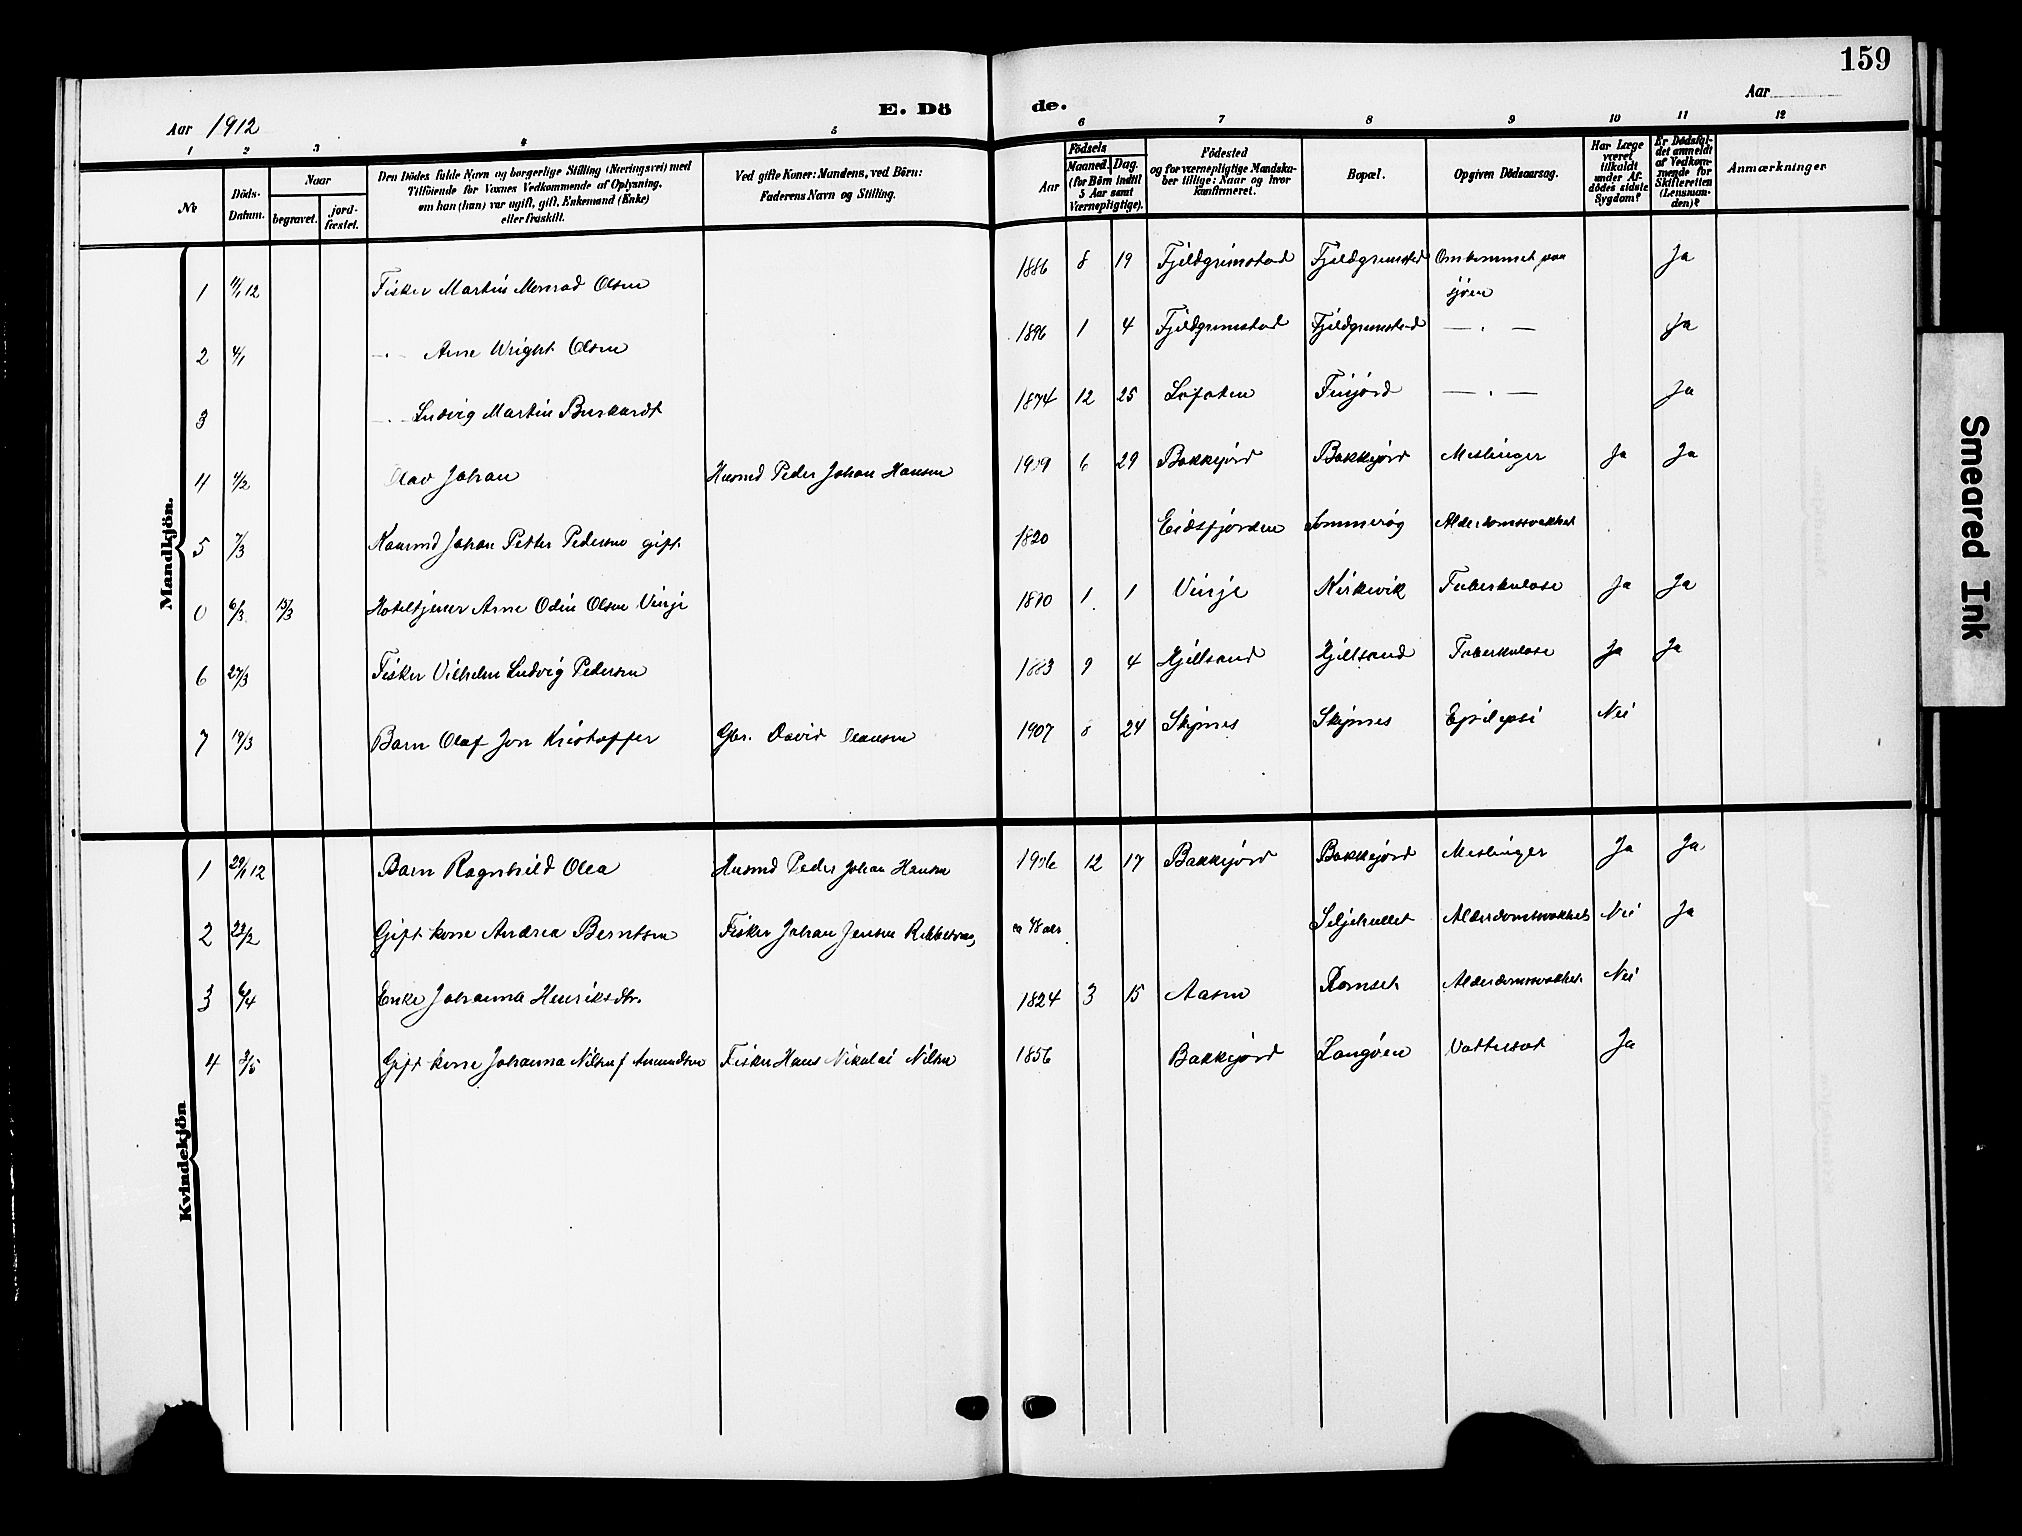 159
E. Dö de.
Aar 1912
Aar
1 2 3 4 5 6 7 8 9 10 11 12
No
Döds-Datum.
Naar
begravet.
jord-fæstet.
Den Dödes fulde Navn og borgerlige Stilling (Næringsvei) med
Tilföiende for Voxnes Vedkommende af Oplysning,
om han (hun) var ugift, gift, Enkemand (Enke)
eller fraskilt.
Ved gifte Koner: Mandens, ved Börn:
Faderens Navn og Stilling.
Födsels
Aar
Maaned.
Dag.
(for Börn indtil
5 Aar samt
Værnepligtige).
Födested
og for værnepligtige Mandska-
ber tillige: Naar og hvor
konfirmeret.
Bopæl.
Opgiven Dödsaarsag.
Har Læge
været
tilkaldt
under Af-
dödes sidste
Sygdom?
Er Dödsfal-
det anmeldt
af Vedkom-
mende for
Skifteretten
(Lensman-
den)?
Anmærkninger
Mandkjön.
1 4/1 12 Fisker Martin Monrad Olsen 1886 8 19 Fjeldgrimstad Fjeldgrimstad Omkommet paa sjöen Ja
2 4/1 — " — Arne Wright Olsen 1896 1 4 Fjeldgrimstad Fjeldgrimstad — " — Ja
3 — " — Ludvig Martin Burkardt 1874 12 25 Lofoten Finjord — " — Ja
4 4/2 Olav Johan Husmd Peder Johan Hansen 1909 6 29 Bakkejord Bakkejord Meslinger Ja Ja
5 7/3 Kaarmd Johan Petter Pedersen gift 1820 Eidsfjorden Sommeröy Alderdomssvakhet
0 6/3 13/3 Hoteltjener Arne Odin Olsen Vinje 1890 1 1 Vinje Kirkevik Tuberkulose Ja Ja
6 27/3 Fisker Vilhelm Ludvig Pedersen 1883 9 4 Kjellsand Kjellsand Tuberkulose Ja Ja
7 19/3 Barn Olaf Jon Kristoffer Gbr. David Hansen 1907 8 24 Skognes Skognes Epilepsi Nei
Kvindekjön
1 29/1 12 Barn Ragnhild Olea Husmd Peder Johan Hansen 1906 12 17 Bakkejord Bakkejord Meslinger Ja Ja
2 23/2 Gift kone Andrea Berntsen Fisker Johan Jensen ca 78 aar Seljehullet Alderdomssvakhet Nei Ja
3 6/4 Enke Johanna Henriksdtr. 1824 3 15 Aasen Ramset Alderdomssvakhet Nei
4 3/5 Gift kone Johanna Nilsen f Amundsen Fisker Hans Nikolai Nilsen 1856 Bakkejord Langöen Vattersot Ja
Smeared Ink